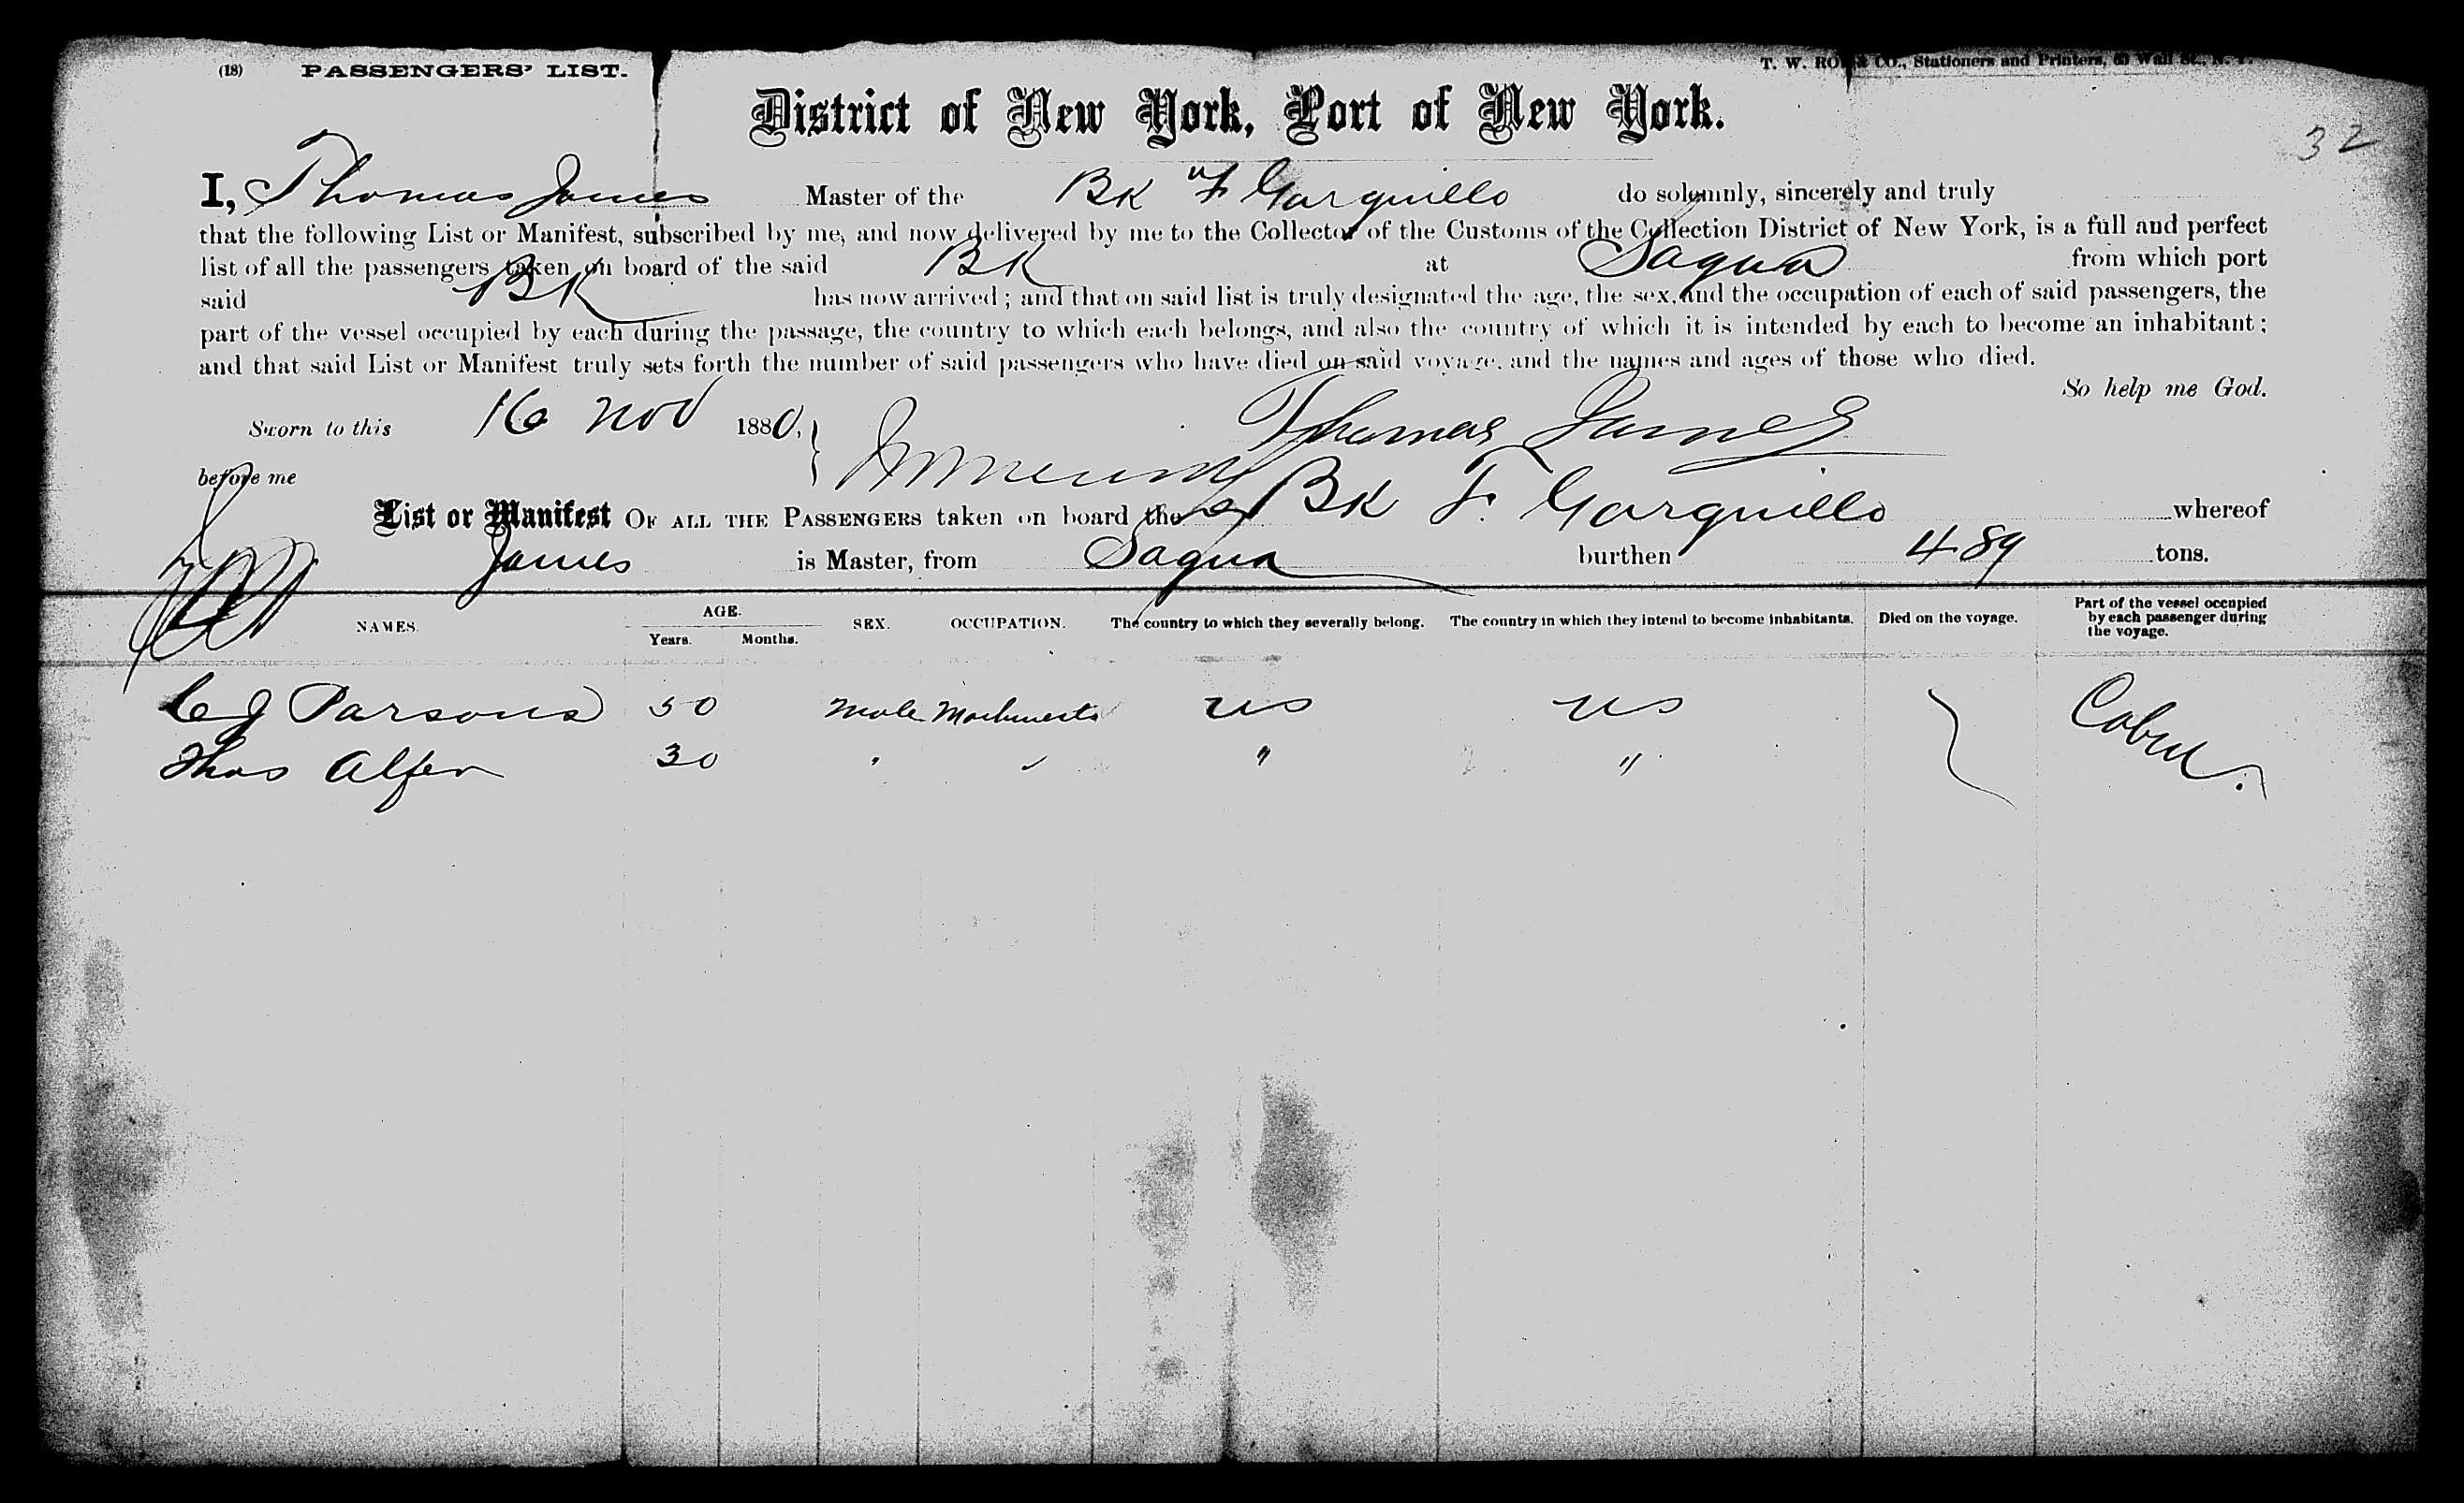 (18) PASSENGERS' LIST.
T. W. & CO., Stationers and Printers, Wall St., N. Y.
District of New York, Port of New York.
32
I, Thomas James Master of the Bk "F Garguillo do solemnly, sincerely and truly
that the following List or Manifest, subscribed by me, and now delivered by me to the Collector of the Customs of the Collection District of New York, is a full and perfect
list of all the passengers taken on board of the said BK at Sagua from which port
said BK has now arrived; and that on said list is truly designated the age, the sex, and the occupation of each of said passengers, the
part of the vessel occupied by each during the passage, the country to which each belongs, and also the country of which it is intended by each to become an inhabitant;
and that said List or Manifest truly sets forth the number of said passengers who have died on said voyage, and the names and ages of those who died.
So help me God.
Sworn to this 16 Nov 1880, Thomas James
before me
List or Manifest OF ALL THE PASSENGERS taken on board the BK F. Garguillo whereof
James is Master, from Sagua burthen 489 tons.
NAMES. AGE. Years. Months. SEX. OCCUPATION. The country to which they severally belong. The country in which they intend to become inhabitants. Died on the voyage. Part of the vessel occupied by each passenger during the voyage.
C J Parsons 50 Male US US Cabin.
Thos Alfer 30 " " " "